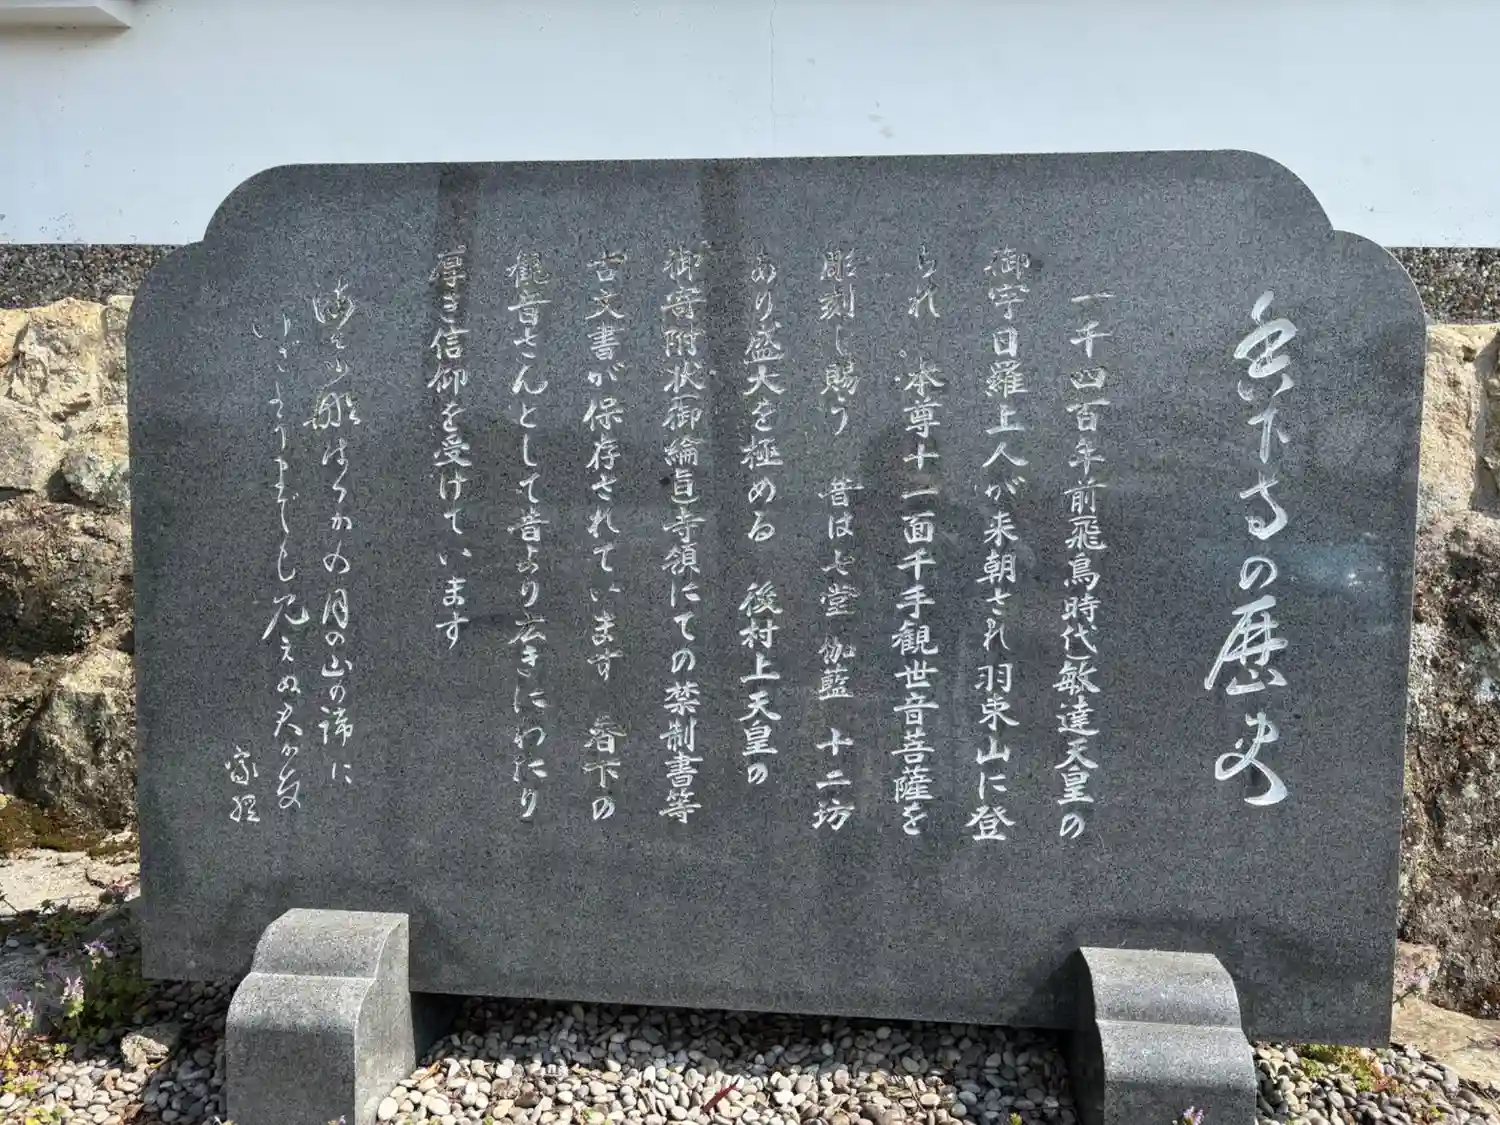 香下寺の歴史
一千四百年前飛鳥時代敏達天皇の
御宇日羅上人が来朝され羽束山に登
られ 本尊十一面千手観世音菩薩を
彫刻し賜う 昔は七堂伽藍 十二坊
あり盛大を極める 後村上天皇の
御寄附状(御綸旨)寺領にての禁制書等
古文書が保存されています 香下の
観音さんとして昔より広きにわたり
厚き信仰を受けています
月の山の端に
いざようまでも見えぬ君